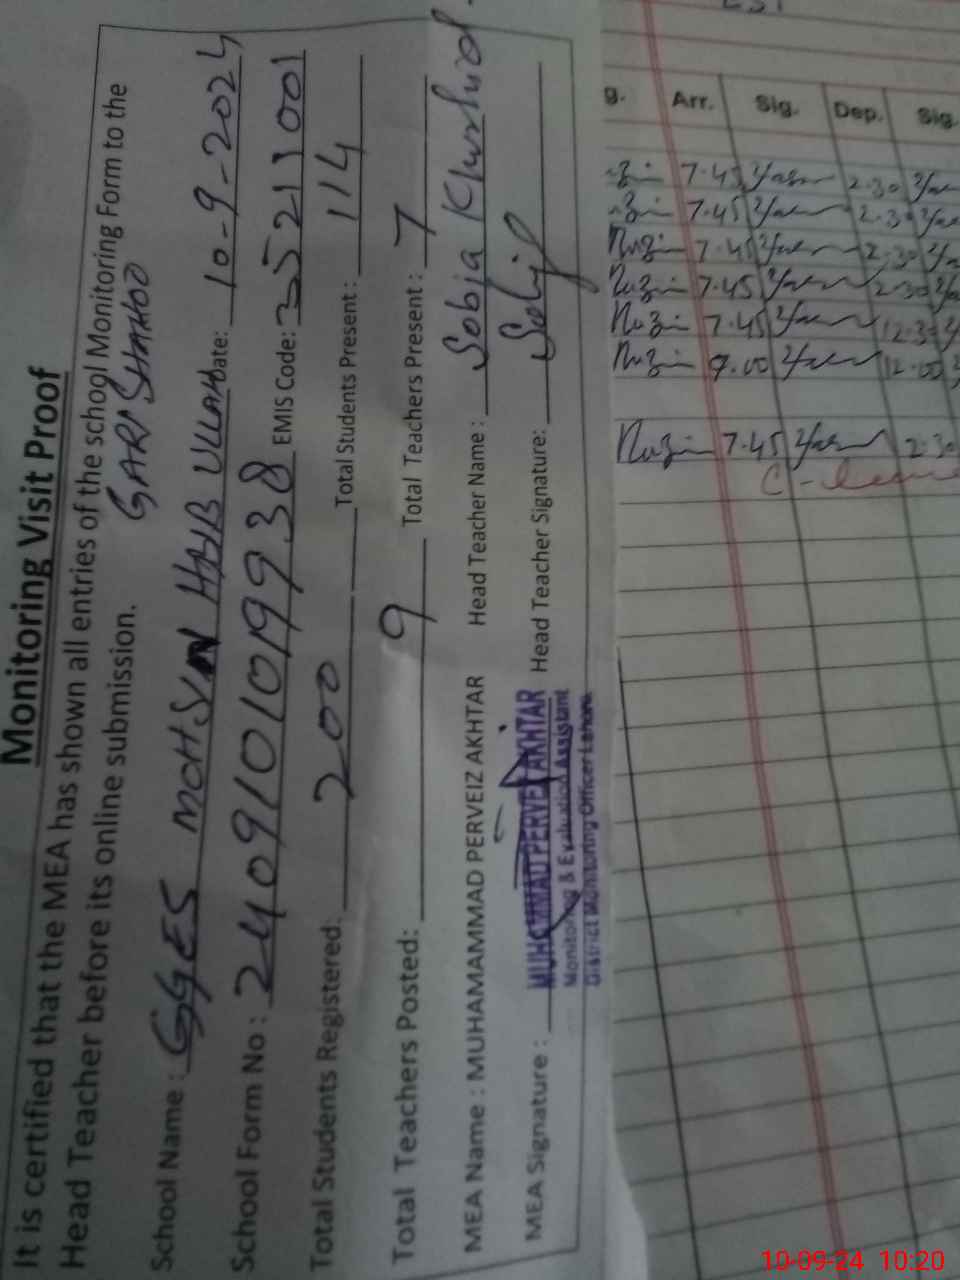 Monitoring Visit Proof
It is certified that the MEA has shown all entries of the school Monitoring Form to the
Head Teacher before its online submission.
GARI SHAHOO
School Name : GGES MOHSIN HABIB ULLAH Date: 10-9-2024
School Form No : 24091010199938 EMIS Code: 35211001
Total Students Registered: 200 Total Students Present : 114
Total Teachers Posted: 9 Total Teachers Present : 7
MEA Name : MUHAMAMMAD PERVEIZ AKHTAR Head Teacher Name : Sobia Khurshid
MEA Signature : Head Teacher Signature:
MUHAMMAD PERVEZ AKHTAR
Monitoring & Evaluation Assistant
District Monitoring Officer Lahore
EST
g. Arr. Sig. Dep. Sig
7.45 2.30
7.45 2.30
7.45 2.30
7.45 2.30
7.45 12.30
9.00 12.00
7.45 2.30
C-leave
10-09-24 10:20